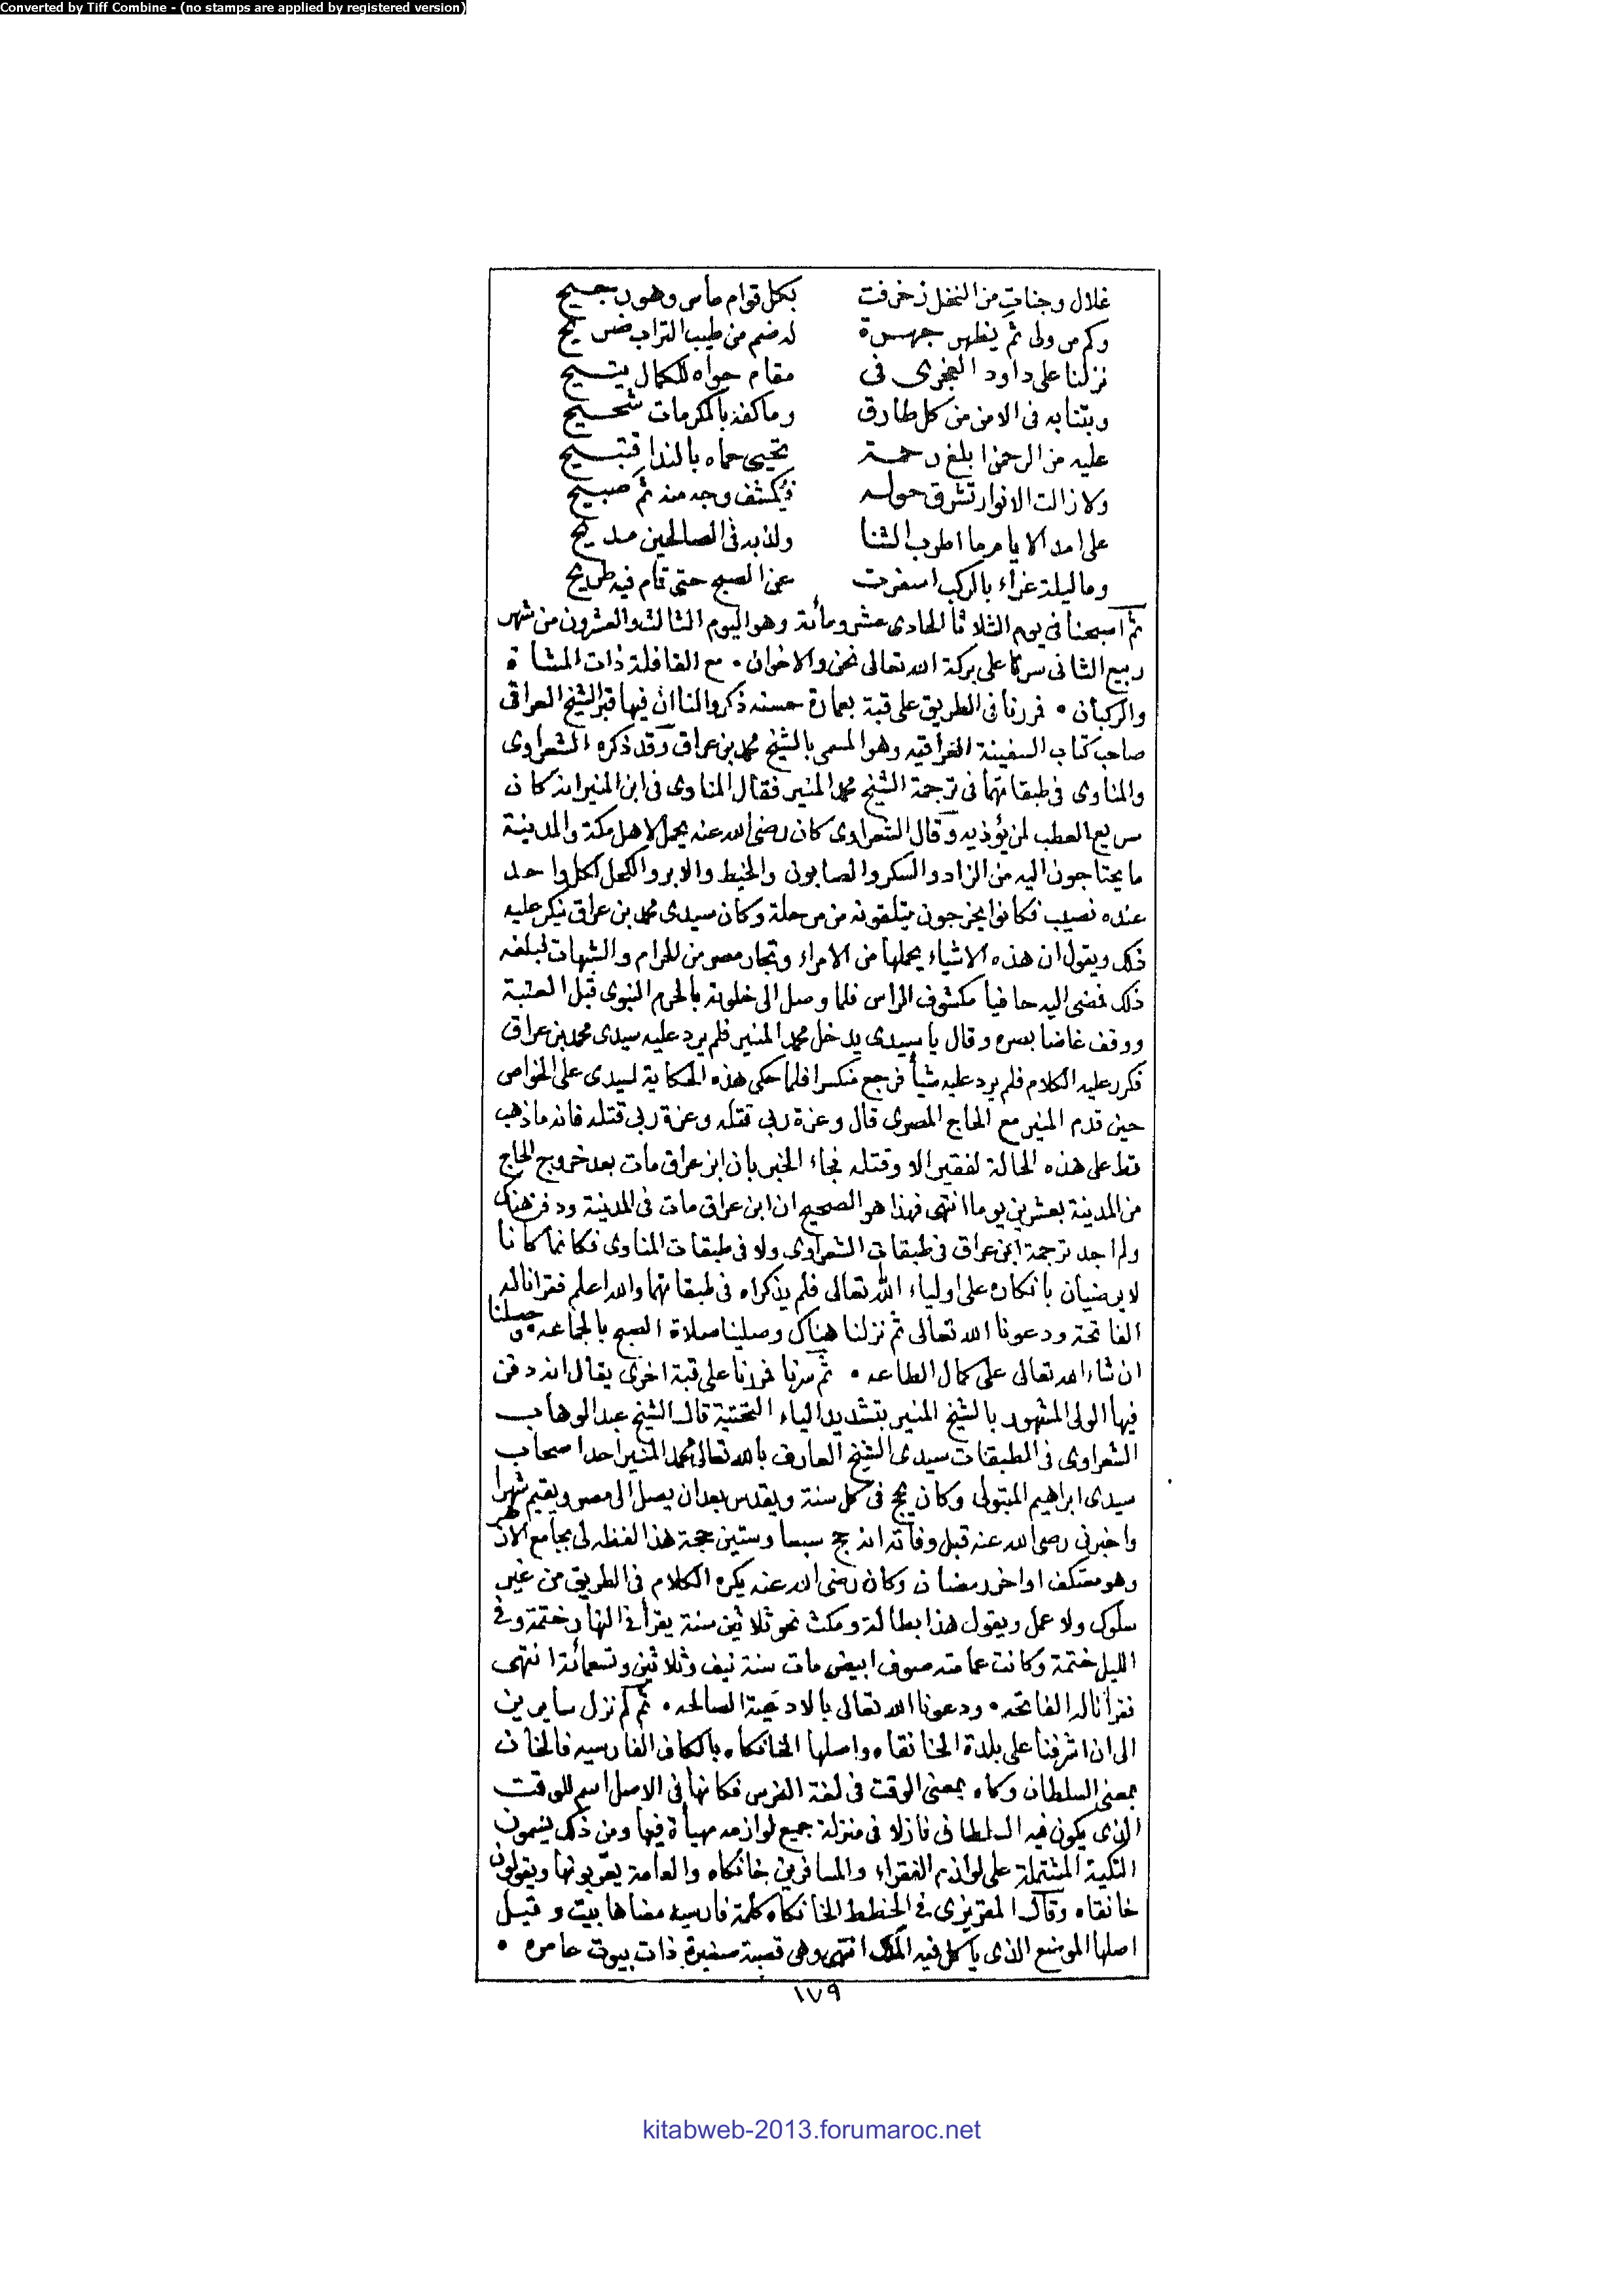 Converted by Tiff Combine - (no stamps are applied by registered version)
غلال وجنات من النخل زخرفت بكل قوام مأس وهو رجيح
وكم من ولى ثم يظهر جهرة له ضم من طيب التراب ضريح
نزلنا على داود العجزى فى مقام حواه للكمال يتيح
وبتنا به فى الامن من كل طارق وما كفه بالمكرمات شحيح
عليه من الرحمن ابلغ رحمة تحيى حماه بالندا
ولا زالت الانوار تشرق حوله فيكشف وجه منه ثم صبيح
على امد الايام ما اطرب الثنا ولذ به فى الصالحين مديح
وما ليلة غراء بالركب اسفرت عن الصبح حتى قام فيه طريح
ثم اصبحنا فى يوم الثلاثا الحادى عشر ومائة وهو اليوم الثالث والعشرون من شهر
ربيع الثانى سرنا على بركة الله تعالى نحن والاخوان • مع القافلة ذات المشاة
والركبان • فمررنا فى الطريق على قبة بعمارة حسنه ذكروا لنا ان فيها قبر الشيخ العراقى
صاحب كتاب السفينة العراقيه وهو المسمى بالشيخ محمد بن عراق وقد ذكره الشعراوى
والمناوى فى طبقاتهما فى ترجمة الشيخ محمد المنير فقال المناوى فى ابن المنير انه كان
سريع العطب لمن يؤذيه وقال الشعراوى كان رضى الله عنه يحمل لاهل مكة والمدينة
ما يحتاجون اليه من الزاد والسكر والصابون والخيط والابر والكحل لكل واحد
عنده نصيب فكانوا يخرجون يتلقونه من مرحلة وكان سيدى محمد بن عراق ينكر عليه
ذلك ويقول ان هذه الاشياء يحملها من الامراء وتجار مصر من الحرام والشبهات فبلغه
ذلك فمضى اليه حافيا مكشوف الراس فلما وصل الى خلوته بالحرم النبوى قبل العتبة
ووقف غاضا بصره وقال يا سيدى يدخل محمد المنير فلم يرد عليه سيدى محمد بن عراق
فكرر عليه الكلام فلم يرد عليه شيأ فرجع منكسرا فلما حكى هذه الحكاية لسيدى على الخواص
حين قدم المنير مع الحاج المصرى قال وعزة ربى قتله وعزة ربى قتله فانه ما ذهب
قط على هذه الحالة لفقير الا وقتله فجاء الخبر بان ابن عراق مات بعد خروج الحاج
من المدينة بعشرين يوما انتهى فهذا هو الصحيح ان ابن عراق مات فى المدينة ودفن هناك
ولم اجد ترجمة ابن عراق فى طبقات الشعراوى ولا فى طبقات المناوى فكانما كانا
لا يرضيان بانكاره على اولياء الله تعالى فلم يذكراه فى طبقاتهما والله اعلم فقرانا له
الفاتحة ودعونا الله تعالى ثم نزلنا هناك وصلينا صلاة الصبح بالجماعه • وحصلنا
ان شاء الله تعالى على كمال الطاعه • ثم سرنا فمررنا على قبة اخرى يقال انه دفن
فيها الولى المشهور بالشيخ المنير بتشديد الياء التحتية قال الشيخ عبد الوهاب
الشعراوى فى الطبقات سيدى الشيخ العارف بالله تعالى محمد المنير احد اصحاب
سيدى ابراهيم المتبولى وكان يحج فى كل سنة ويقدس بعد ان يصل الى مصر ويقيم شهرا
واخبرنى رضى الله عنه قبل وفاته انه حج سبعا وستين حجة هذا لفظه لى بجامع الازهر
وهو معتكف اواخر رمضان وكان رضى الله عنه يكره الكلام فى الطريق من غير
سلوك ولا عمل ويقول هذا بطالة ومكث نحو ثلاثين سنة يقرأ فى النهار ختمة وفى
الليل ختمة وكانت عمامته صوف ابيض مات سنة نيف وثلاثين وتسعمائة انتهى
فقرأنا له الفاتحه • ودعونا الله تعالى بالادعية الصالحه • ثم لم نزل سايرين
الى ان اشرفنا على بلدة الخانقاه واصلها الخانكاه بالكاف الفارسيه فالخان
بمعنى السلطان وكاه بمعنى الوقت فى لغة الفرس فكانها فى الاصل اسم للوقت
الذى يكون فيه السلطان نازلا فى منزلة جميع لوازمه مهيأة فيها ومن ذلك يسمون
التكية المشتملة على لوازم الفقراء والمسافرين خانكاه والعامة يعربونها ويقولون
خانقاه وقال المقريزى فى الخطط الخانكاه كلمة فارسيه معناها بيت وقيل
اصلها الموضع الذى ياكل فيه الملك انتهى وهى قصبة صغيرة ذات بيوت عامره •
١٧٩
kitabweb-2013.forumaroc.net